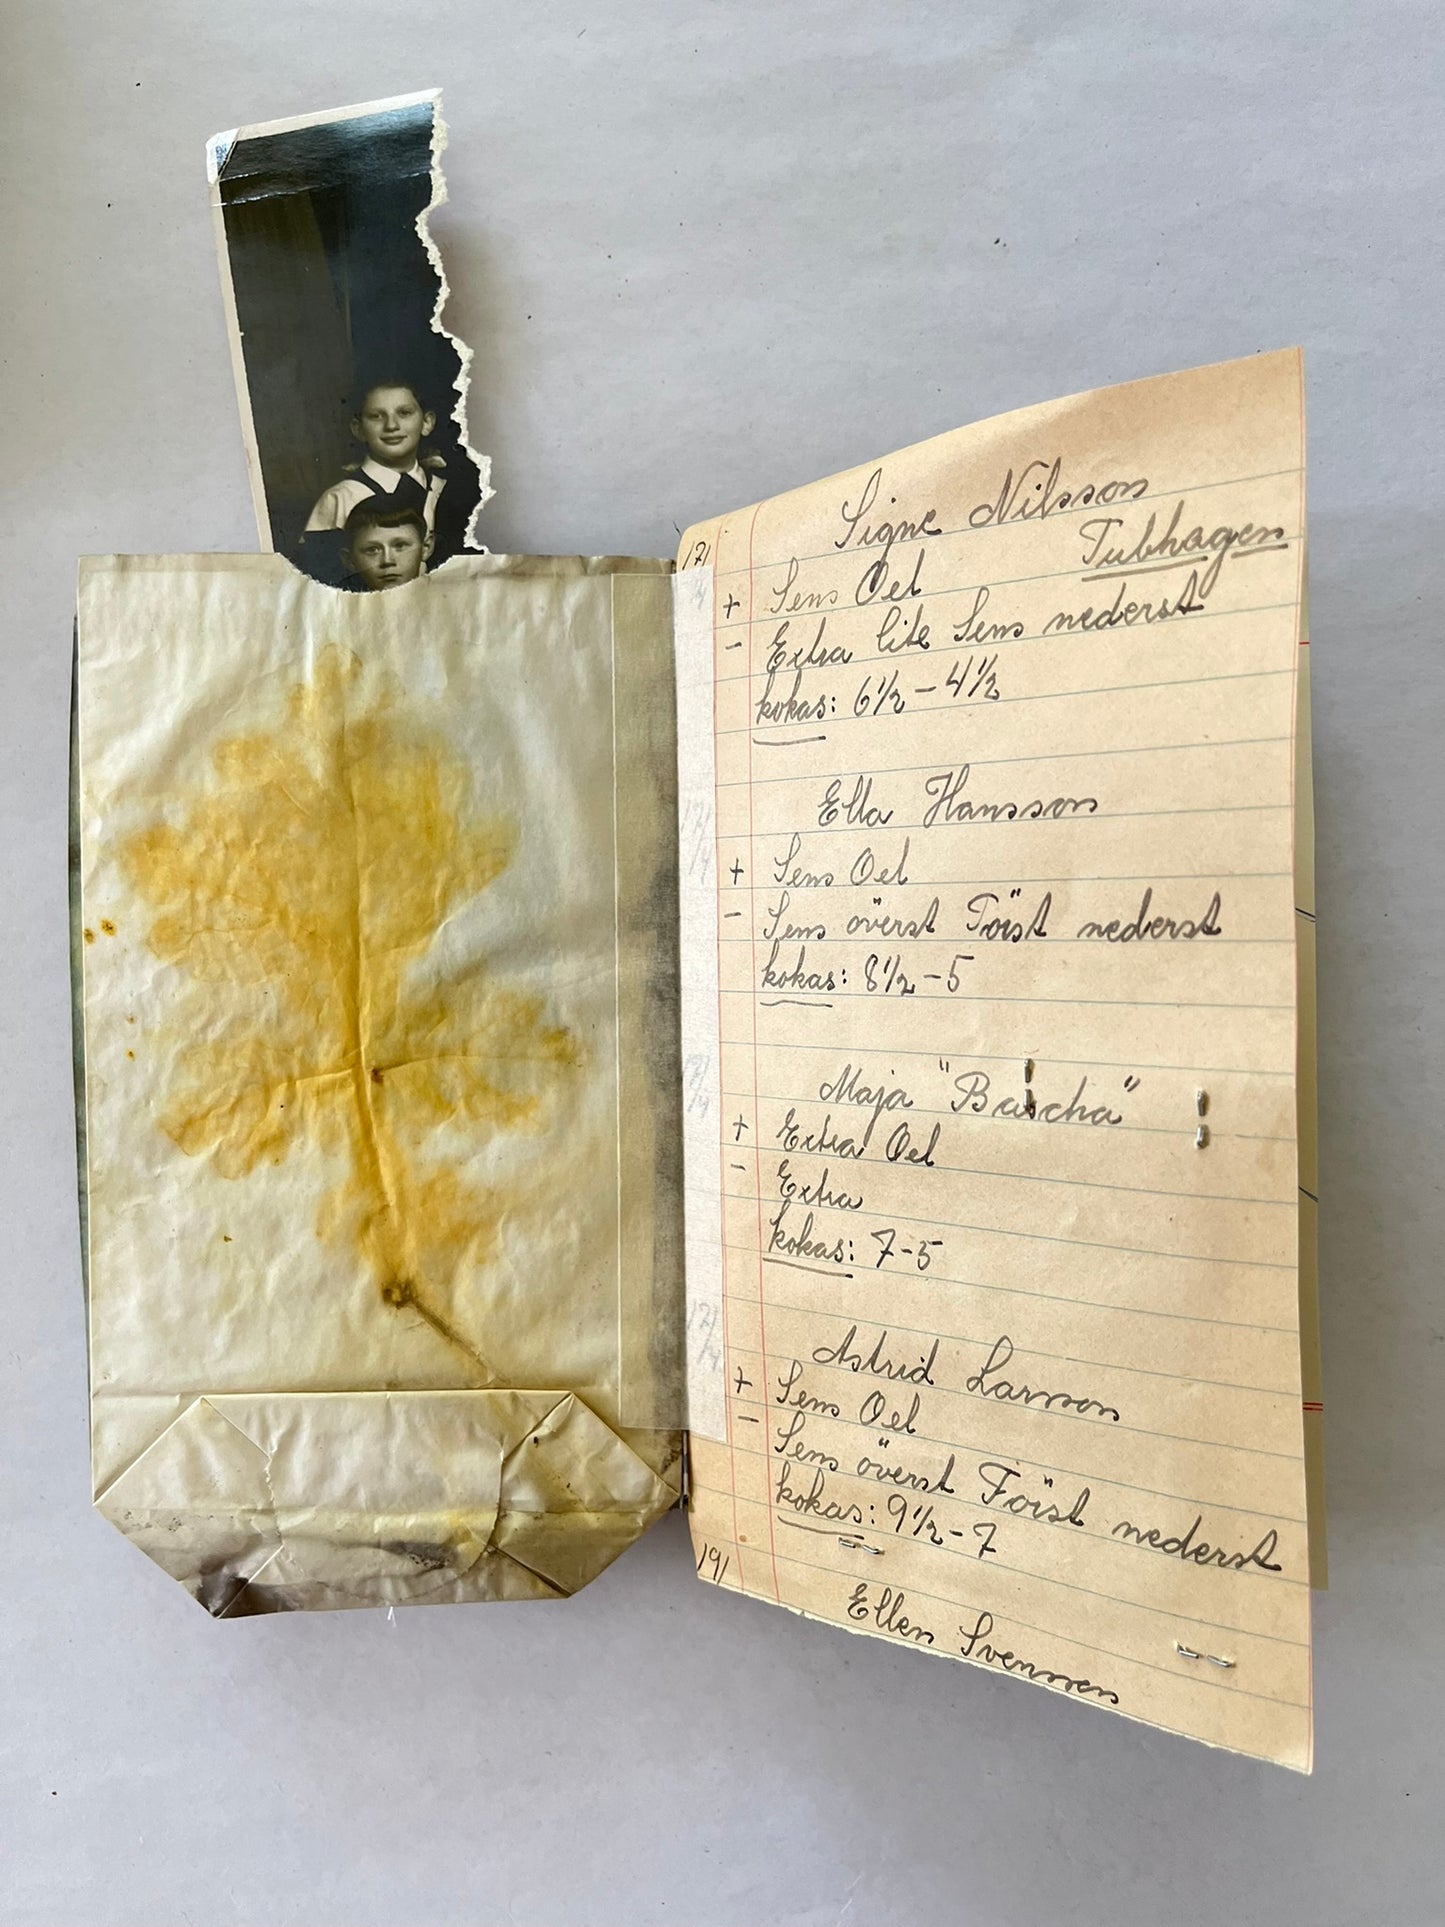 Signe Nilsson
Tubhagen
+ Sens Oel
- Extra lite Sens nederst
kokas: 6 1/2 - 4 1/2
Ella Hansson
+ Sens Oel
- Sens överst Töist nederst
kokas: 8 1/2 - 5
Maja "Bascha"
+ Extra Oel
- Extra
kokas: 7-5
Astrid Larsson
+ Sens Oel
- Sens överst Töist nederst
kokas: 9 1/2 - 7
191
Ellen Svensson